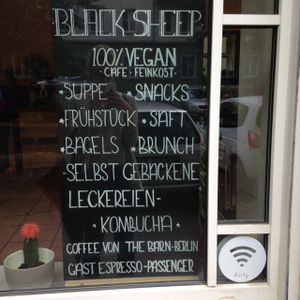 BLACK SHEEP
100% VEGAN
- CAFE - FEINKOST -
*SUPPE *SNACKS
*FRÜHSTÜCK *SAFT
*BAGELS *BRUNCH
-SELBST GEBACKENE
LECKEREIEN-
*KOMBUCHA*
COFFEE VON THE BARN-BERLIN
GAST ESPRESSO-PASSENGER